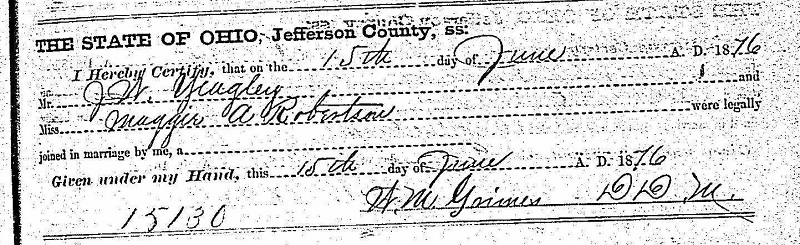 THE STATE OF OHIO, Jefferson County, ss:
I Hereby Certify, that on the 15th day of June A. D. 1876
Mr. J. W. Yeagley and
Miss Maggie A Robertson were legally
joined in marriage by me, a
Given under my Hand, this 15th day of June A. D. 1876
15130 W. M. Grimes D D M.